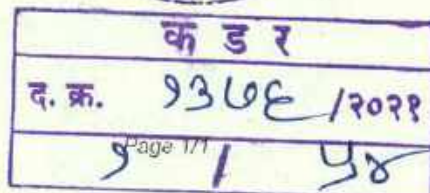 क ड र
द. क्र. १३७६ /२०२१
Page 1/1
१ / ५४